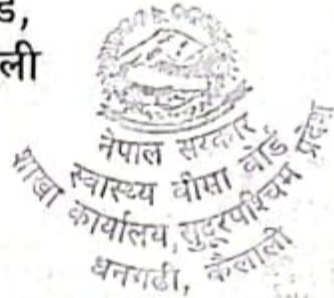 ड,
ली
नेपाल सरकार
स्वास्थ्य बीमा बोर्ड
शाखा कार्यालय, सुदूरपश्चिम प्रदेश
धनगढी, कैलाली